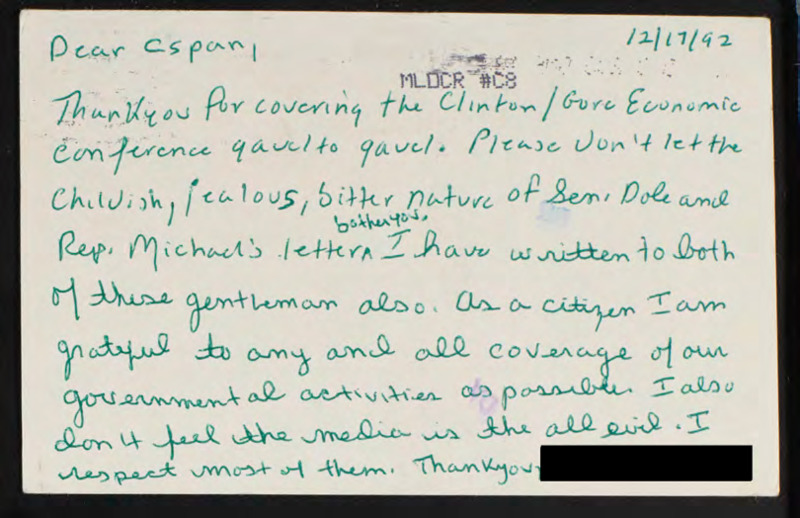 12/17/92
Dear Cspan,
MLOCR #C8
Thankyou for covering the Clinton/Gore Economic
conference gavel to gavel. Please don't let the
Childish, jealous, bitter nature of Sen. Dole and
bother you.
Rep. Michael's letter I have written to both
of these gentleman also. As a citizen I am
grateful to any and all coverage of our
governmental activities as possible. I also
don't feel the media is the all evil. I
respect most of them. Thankyou,